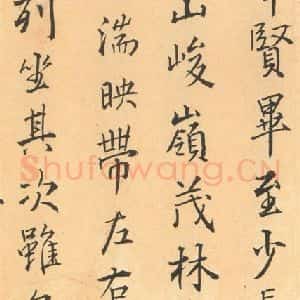 賢畢至少
山峻嶺茂林
湍映帶左右
列坐其次雖
Shufawang.CN